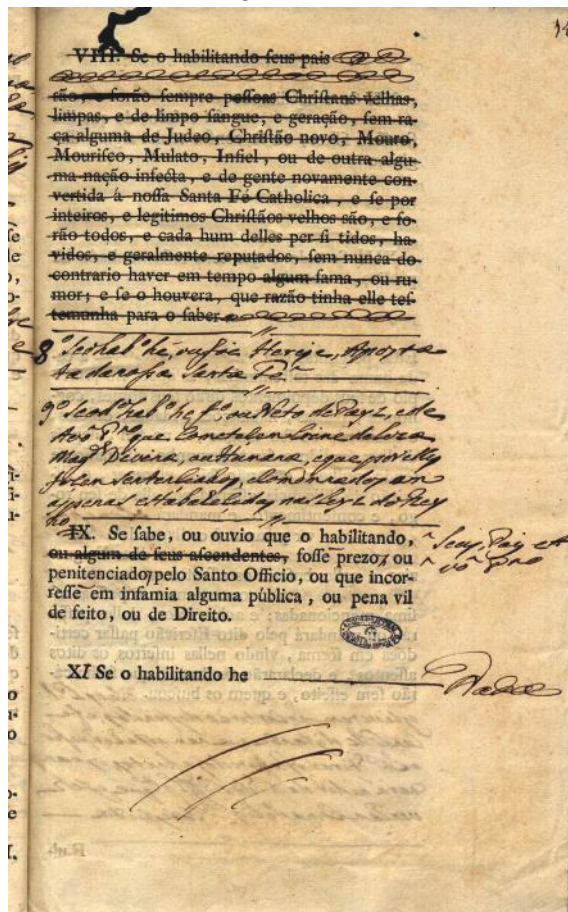 VIII. Se o habilitando ſeus pais
são, e forão ſempre peſſoas Chriſtans velhas,
limpas, e de limpo ſangue, e geração, ſem ra-
ça alguma de Judeo, Chriſtão novo, Mouro,
Mouriſco, Mulato, Infiel, ou de outra algu-
ma nação infecta, e de gente novamente con-
vertida á noſſa Santa Fé Catholica, e ſe por
inteiros, e legitimos Chriſtãos velhos são, e fo-
rão todos, e cada hum delles per ſi tidos, ha-
vidos, e geralmente reputados, ſem nunca do
contrario haver em tempo algum fama, ou ru-
mor; e ſe o houvera, que razão tinha elle teſ-
temunha para o ſaber.
8º Se o hab.º hé, ou foi Hereje, Apozta
ta da nosa Santa Fé
9º Se o d.º hab.º he f.º, ou Neto de Pay, e de
Avô P.no que Cometesem Crime de Leza
Mag.de Divina, ou Humana, e que por elle
fosem Sentenciados, e Condenados
as penas estabelecidas nas Leys do Rey
no
IX. Se ſabe, ou ouvio que o habilitando,
ou algum de ſeus aſcendentes, foſſe prezo, ou
^ Seu Pay, e A
vô P.no
penitenciado pelo Santo Officio, ou que incor-
reſſe em infamia alguma pública, ou pena vil
de feito, ou de Direito.
XI Se o habilitando he